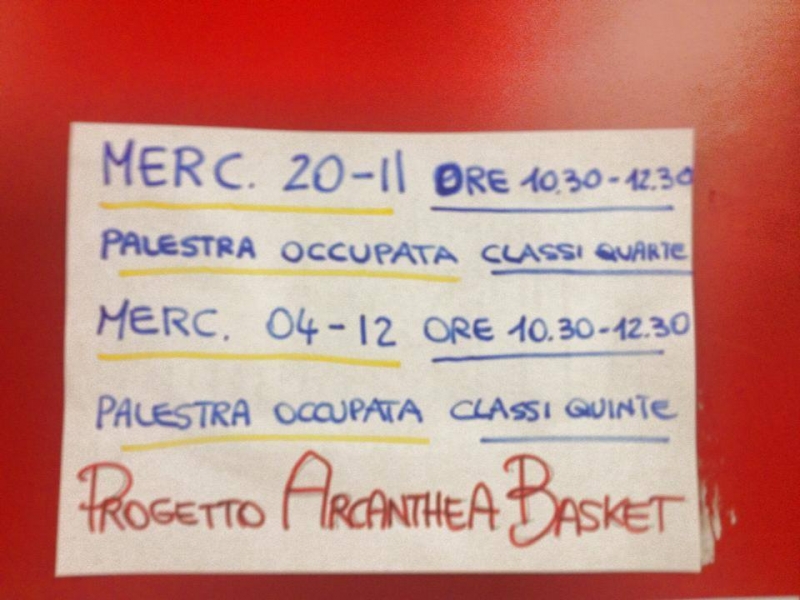 MERC. 20-11 ORE 10.30-12.30
PALESTRA OCCUPATA CLASSI QUARTE
MERC. 04-12 ORE 10.30-12.30
PALESTRA OCCUPATA CLASSI QUINTE
PROGETTO ARCANTHEA BASKET